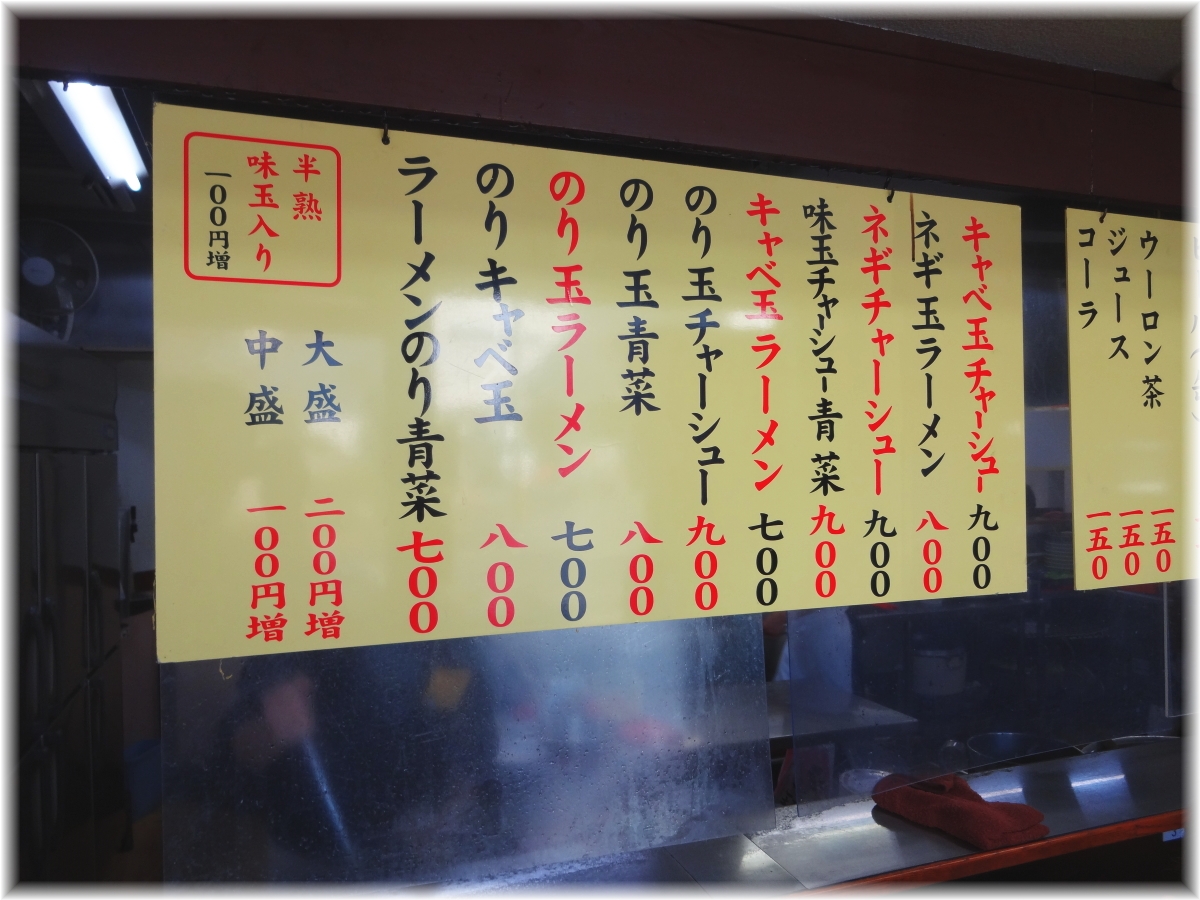 ウーロン茶 一五〇
ジュース 一五〇
コーラ 一五〇
キャベ玉チャーシュー 九〇〇
ネギ玉ラーメン 八〇〇
ネギチャーシュー 九〇〇
味玉チャーシュー青菜 九〇〇
キャベ玉ラーメン 七〇〇
のり玉チャーシュー 九〇〇
のり玉青菜 八〇〇
のり玉ラーメン 七〇〇
のりキャベ玉 八〇〇
ラーメンのり青菜 七〇〇
半熟
味玉入り
一〇〇円増
大盛 二〇〇円増
中盛 一〇〇円増